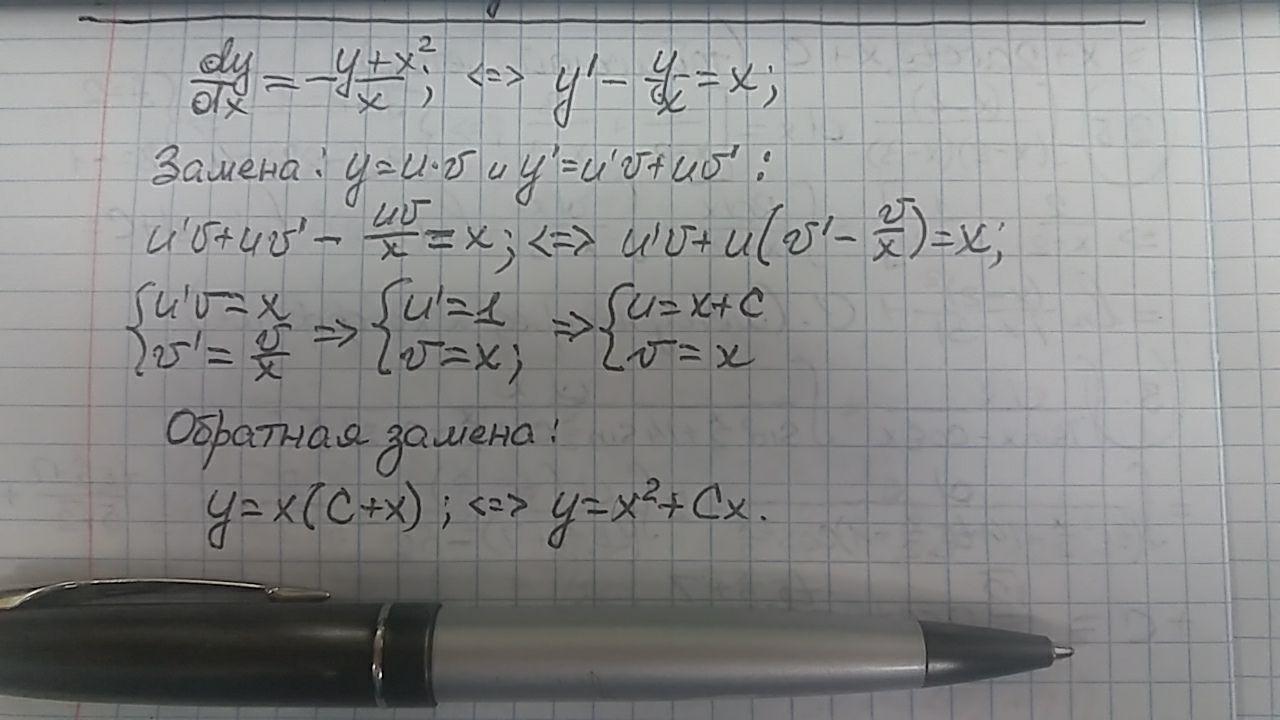 dy/dx = -y+x²/x; <=> y' - y/x = x;
Замена: y=u·v и y'=u'v+uv' :
u'v+uv' - uv/x = x; <=> u'v+u(v' - v/x)=x;
{u'v=x v'=v/x => {u'=1 v=x; => {u=x+C v=x
Обратная замена:
y=x(C+x); <=> y=x²+Cx.